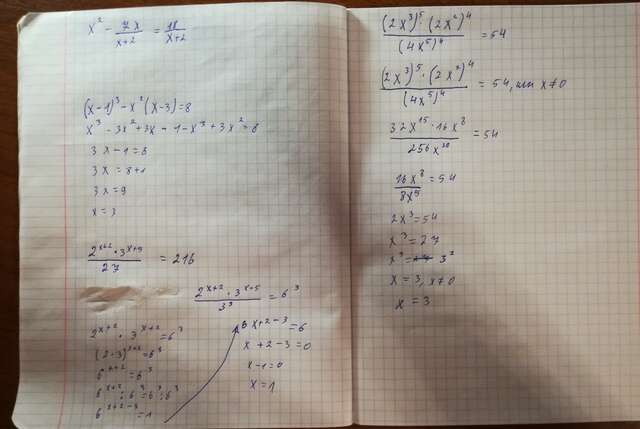 x² - 7x/(x+2) = 18/(x+2)
(x-1)³ - x²(x-3) = 8
x³ - 3x² + 3x - 1 - x³ + 3x² = 8
3x - 1 = 8
3x = 8+1
3x = 9
x = 3
(2^(x+2) · 3^(x+5))/27 = 216
(2^(x+2) · 3^(x+5))/3³ = 6³
2^(x+2) · 3^(x+2) = 6³
(2·3)^(x+2) = 6³
6^(x+2) = 6³
6^(x+2) : 6³ = 6³ : 6³
6^(x+2-3) = 1
6^(x+2-3) = 6
x + 2 - 3 = 0
x - 1 = 0
x = 1
((2x³)⁵ · (2x²)⁴)/(4x⁵)⁴ = 54
((2x³)⁵ · (2x²)⁴)/(4x⁵)⁴ = 54, x ≠ 0
(32x¹⁵ · 16x⁸)/(256x²⁰) = 54
= 54
2x³ = 54
x³ = 27
x = 3, x ≠ 0
x = 3